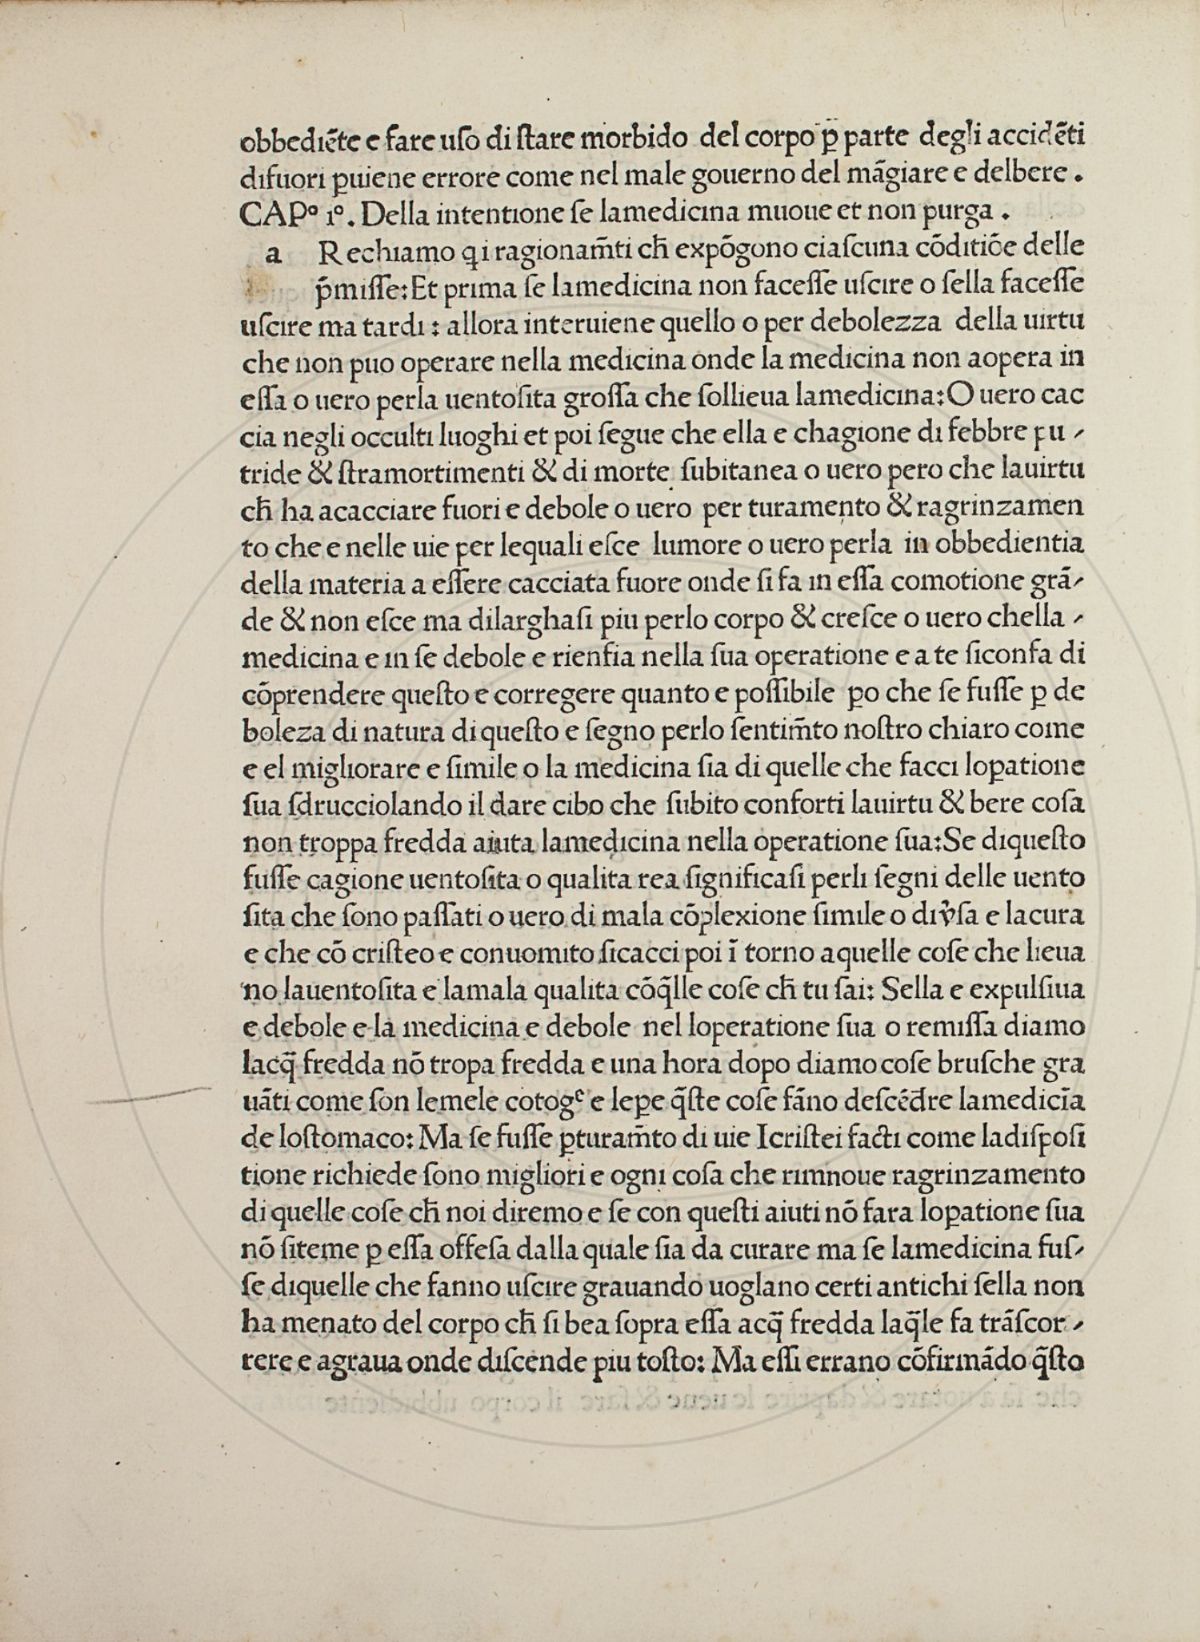 obbediēte e fare uſo di ſtare morbido del corpo ꝑ parte degli accidēti
difuori ꝑuiene errore come nel male gouerno del māgiare e delbere .
CAPº 1º. Della intentione ſe lamedicina muoue et non purga .
a Rechiamo qi ragionam̄ti cħ expōgono ciaſcuna cōditiōe delle
p̄miſſe:Et prima ſe lamedicina non faceſſe uſcire o ſella faceſſe
uſcire ma tardi : allora interuiene quello o per debolezza della uirtu
che non puo operare nella medicina onde la medicina non aopera in
eſſa o uero perla uentoſita groſſa che ſollieua lamedicina:O uero cac
cia negli occulti luoghi et poi ſegue che ella e chagione di febbre pu⸗
tride & ſtramortimenti & di morte ſubitanea o uero pero che lauirtu
cħ ha acacciare fuori e debole o uero per turamento & ragrinzamen
to che e nelle uie per lequali eſce lumore o uero perla in obbedientia
della materia a eſſere cacciata fuore onde ſi fa in eſſa comotione grā⸗
de & non eſce ma dilarghaſi piu perlo corpo & creſce o uero chella ⸗
medicina e in ſe debole e rienfia nella ſua operatione e a te ſiconfa di
cōprendere queſto e corregere quanto e poſſibile ꝑo che ſe fuſſe ꝑ de
boleza di natura di queſto e ſegno perlo ſentim̄to noſtro chiaro come
e el migliorare e ſimile o la medicina ſia di quelle che facci loꝑatione
ſua ſdrucciolando il dare cibo che ſubito conforti lauirtu & bere coſa
non troppa fredda aiuta lamedicina nella operatione ſua:Se diqueſto
fuſſe cagione uentoſita o qualita rea ſignificaſi perli ſegni delle uento
ſita che ſono paſſati o uero di mala cōplexione ſimile o diṽſa e lacura
e che cō criſteo e conuomito ſicacci poi ī torno aquelle coſe che lieua
no lauentoſita e lamala qualita cōq̄lle coſe cħ tu ſai: Sella e expulſiua
e debole e la medicina e debole nel loperatione ſua o remiſſa diamo
lacq̄ fredda nō tropa fredda e una hora dopo diamo coſe bruſche gra
uāti come ſon lemele cotogᵉ e lepe q̄ſte coſe fāno deſcēdr̄e lamedicīa
de loſtomaco: Ma ſe fuſſe ꝑturam̄to di uie Icriſtei facti come ladiſpoſi
tione richiede ſono migliori e ogni coſa che rimnoue ragrinzamento
di quelle coſe cħ noi diremo e ſe con queſti aiuti nō fara loꝑatione ſua
nō ſiteme ꝑ eſſa offeſa dalla quale ſia da curare ma ſe lamedicina fuſ⸗
ſe diquelle che fanno uſcire grauando uoglano certi antichi ſella non
ha menato del corpo cħ ſi bea ſopra eſſa acq̄ fredda laq̄le fa trāſcor⸗
rere e agraua onde diſcende piu toſto: Ma eſſi errano cōfirmādo q̄ſto